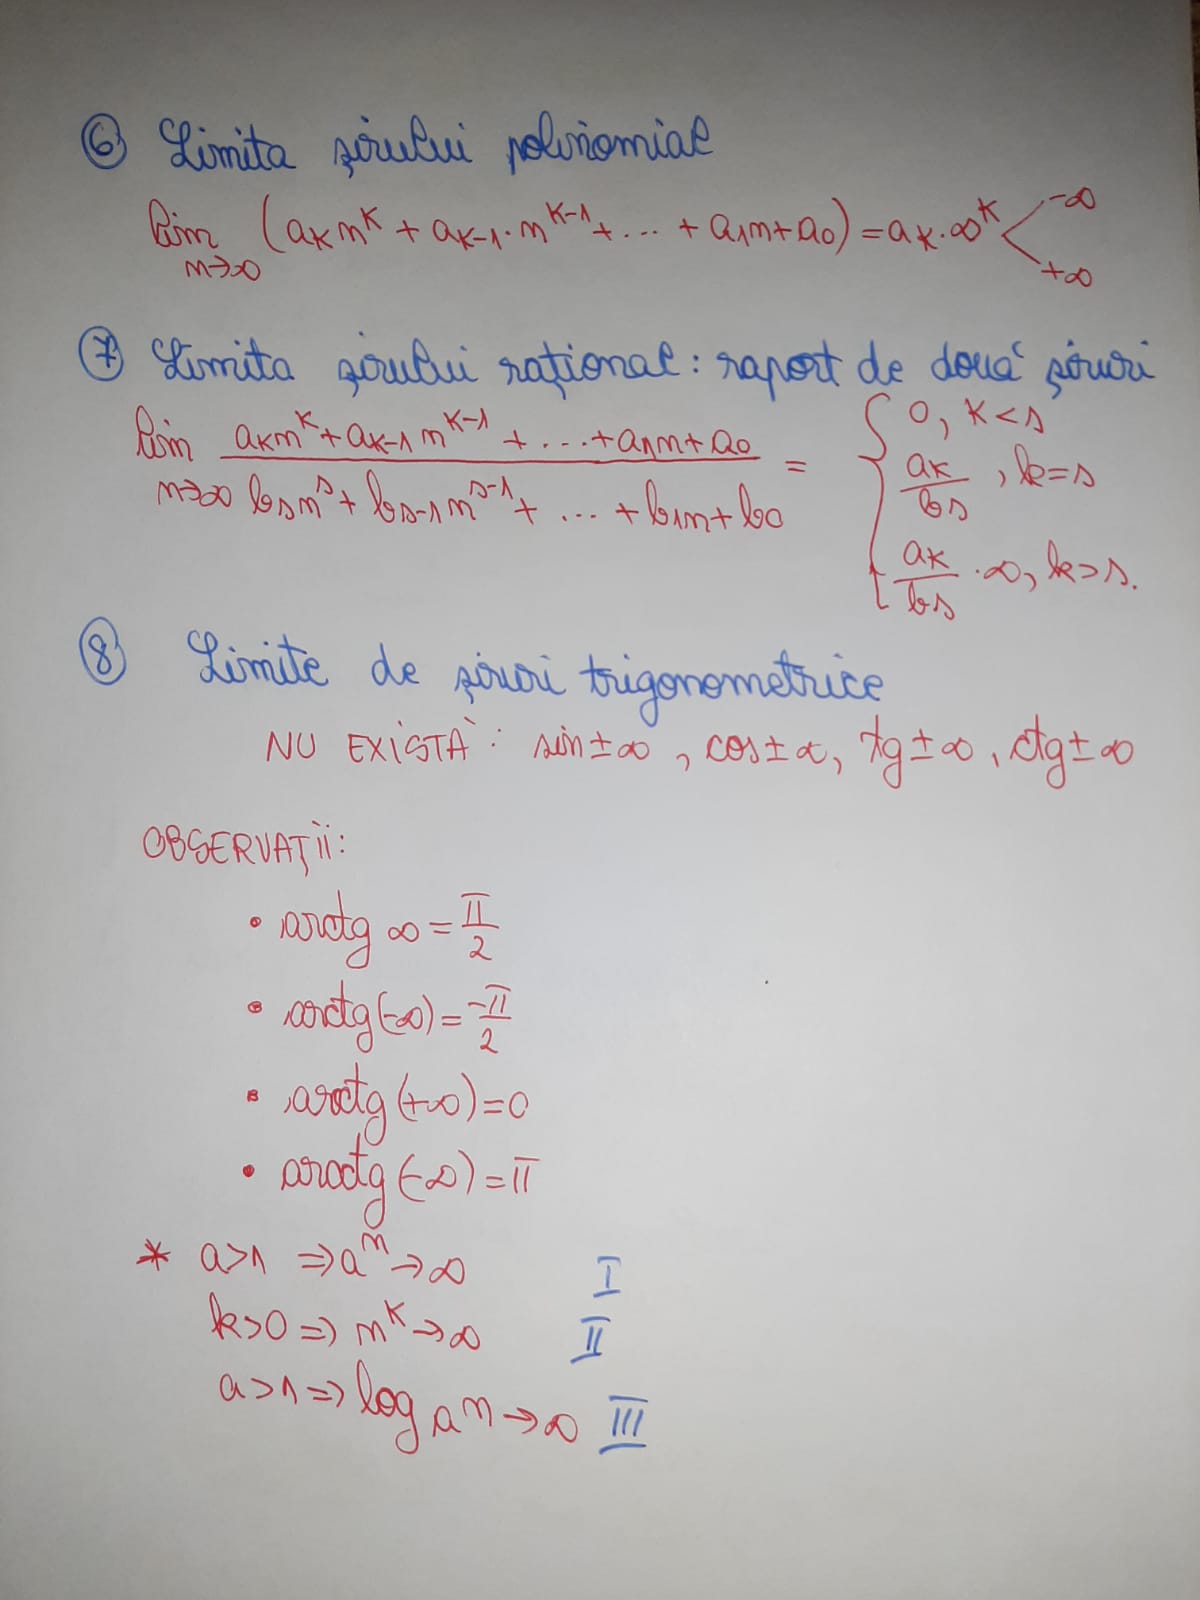 ⑥ Limita șirului polinomial
lim n→∞ (aₖnᵏ + aₖ₋₁·nᵏ⁻¹ + ... + a₁n + a₀) = aₖ·∞ᵏ < -∞ +∞
⑦ Limita șirului rațional: raport de două șiruri
lim n→∞ (aₖnᵏ + aₖ₋₁nᵏ⁻¹ + ... + a₁n + a₀) / (bₛnˢ + bₛ₋₁nˢ⁻¹ + ... + b₁n + b₀) = { 0, k<s
aₖ/bₛ, k=s
aₖ/bₛ·∞, k>s.
⑧ Limite de șiruri trigonometrice
NU EXISTĂ: sin±∞, cos±∞, tg±∞, ctg±∞
OBSERVAȚII:
• arctg ∞ = π/2
• arctg(-∞) = -π/2
• arcctg(+∞) = 0
• arcctg(-∞) = π
* a>1 ⇒ aⁿ→∞ I
k>0 ⇒ nᵏ→∞ II
a>1 ⇒ logₐn→∞ III